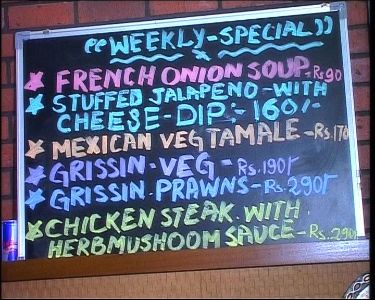 ((WEEKLY - SPECIAL))
FRENCH ONION SOUP - Rs 90
STUFFED JALAPENO - WITH
CHEESE - DIP - 160/-
MEXICAN VEG TAMALE - Rs. 170
GRISSIN - VEG - Rs. 190/-
GRISSIN. PRAWNS - Rs. 290/-
CHICKEN STEAK. WITH.
HERBMUSHOOM SAUCE - Rs. 290/-